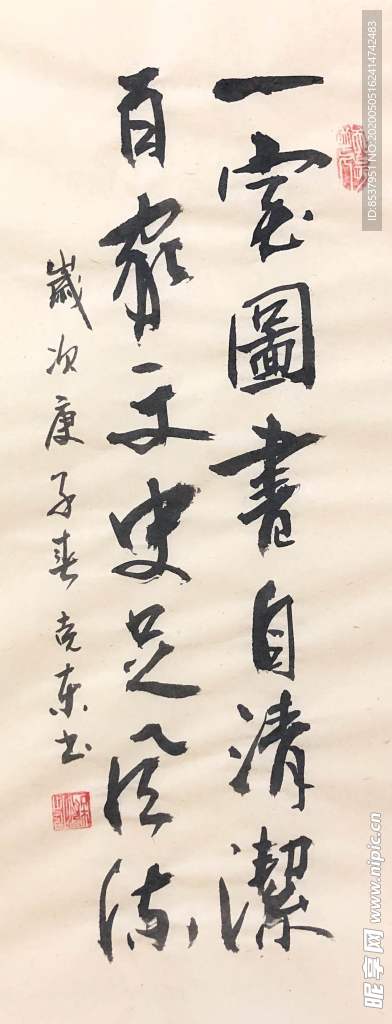 一室圖書自清潔
百家文史足風流
歲次庚子春克東书
ID:8537951 NO:20200505162414742483
昵享网 www.nipic.cn